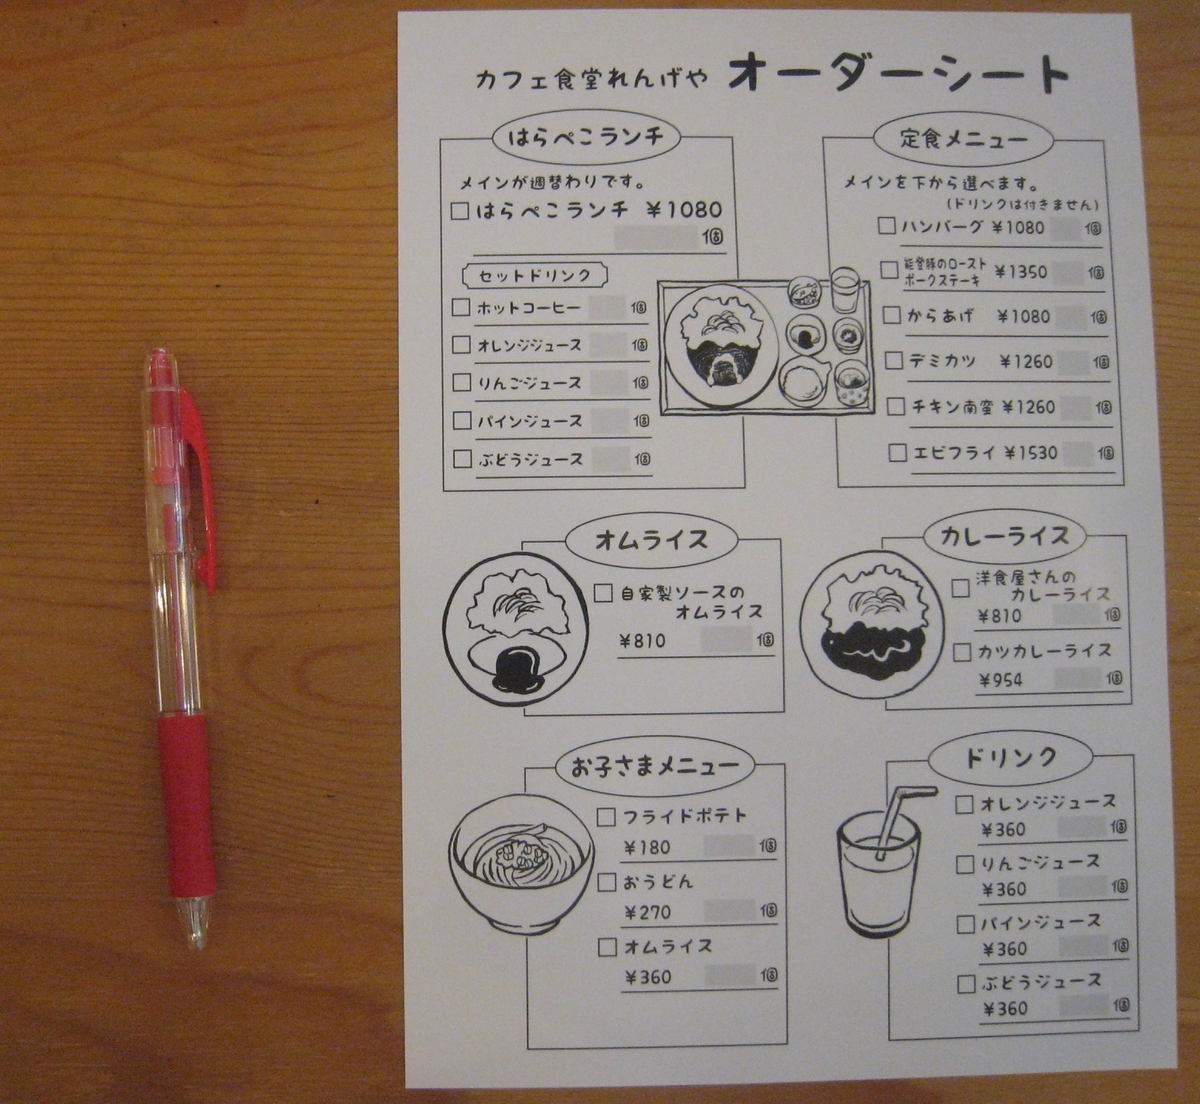 カフェ食堂れんげや オーダーシート
はらぺこランチ
メインが週替わりです。
はらぺこランチ ¥1080
個
セットドリンク
ホットコーヒー 個
オレンジジュース 個
りんごジュース 個
パインジュース 個
ぶどうジュース 個
定食メニュー
メインを下から選べます。
(ドリンクは付きません)
ハンバーグ ¥1080 個
能登豚のロースト
ポークステーキ ¥1350 個
からあげ ¥1080 個
デミカツ ¥1260 個
チキン南蛮 ¥1260 個
エビフライ ¥1530 個
オムライス
自家製ソースの
オムライス
¥810 個
カレーライス
洋食屋さんの
カレーライス
¥810 個
カツカレーライス
¥954 個
お子さまメニュー
フライドポテト
¥180 個
おうどん
¥270 個
オムライス
¥360 個
ドリンク
オレンジジュース
¥360 個
りんごジュース
¥360 個
パインジュース
¥360 個
ぶどうジュース
¥360 個